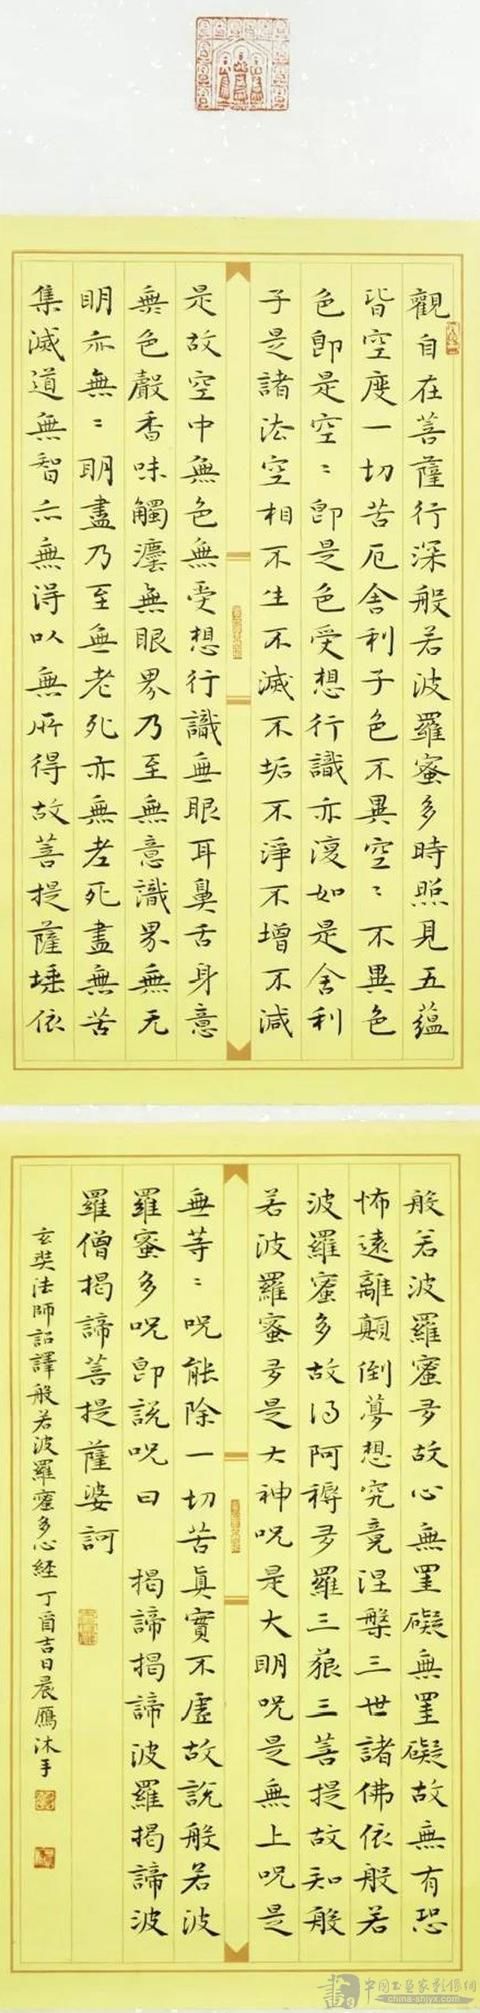 觀自在菩薩行深般若波羅蜜多時照見五蘊
皆空度一切苦厄舍利子色不異空〻不異色
色即是空〻即是色受想行識亦復如是舍利
子是諸法空相不生不滅不垢不淨不增不減
是故空中無色無受想行識無眼耳鼻舌身意
無色聲香味觸塵無眼界乃至無意識界無无
明亦無〻明盡乃至無老死亦無老死盡無苦
集滅道無智亦無得以無所得故菩提薩埵依
般若波羅蜜多故心無罣礙無罣礙故無有恐
怖遠離顛倒夢想究竟涅槃三世諸佛依般若
波羅蜜多故得阿耨多羅三藐三菩提故知般
若波羅蜜多是大神呪是大明呪是無上呪是
無等〻呪能除一切苦真實不虛故說般若波
羅蜜多呪即說呪曰 揭諦揭諦波羅揭諦波
羅僧揭諦菩提薩婆訶
玄奘法師詔譯般若波羅蜜多心經丁酉吉日晨雁沐手
中国书画家影像网
china-shjyx.com